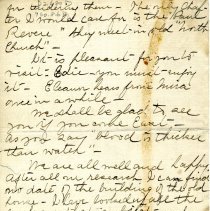 for evidering them - The only chap-
ter I would care for is the Paul
Revere" they meet in old "North
Church" -
It is pleasant for you to
visit - Edie - you must enjoy
it - Eleanor hears from Mina
once in a while -
We shall be glad to see
you if you come East -
As you say "blood is thicker
than water" -
We are all well and happy
After all our research I can find
no date of the building of the old
home - I have looked all the